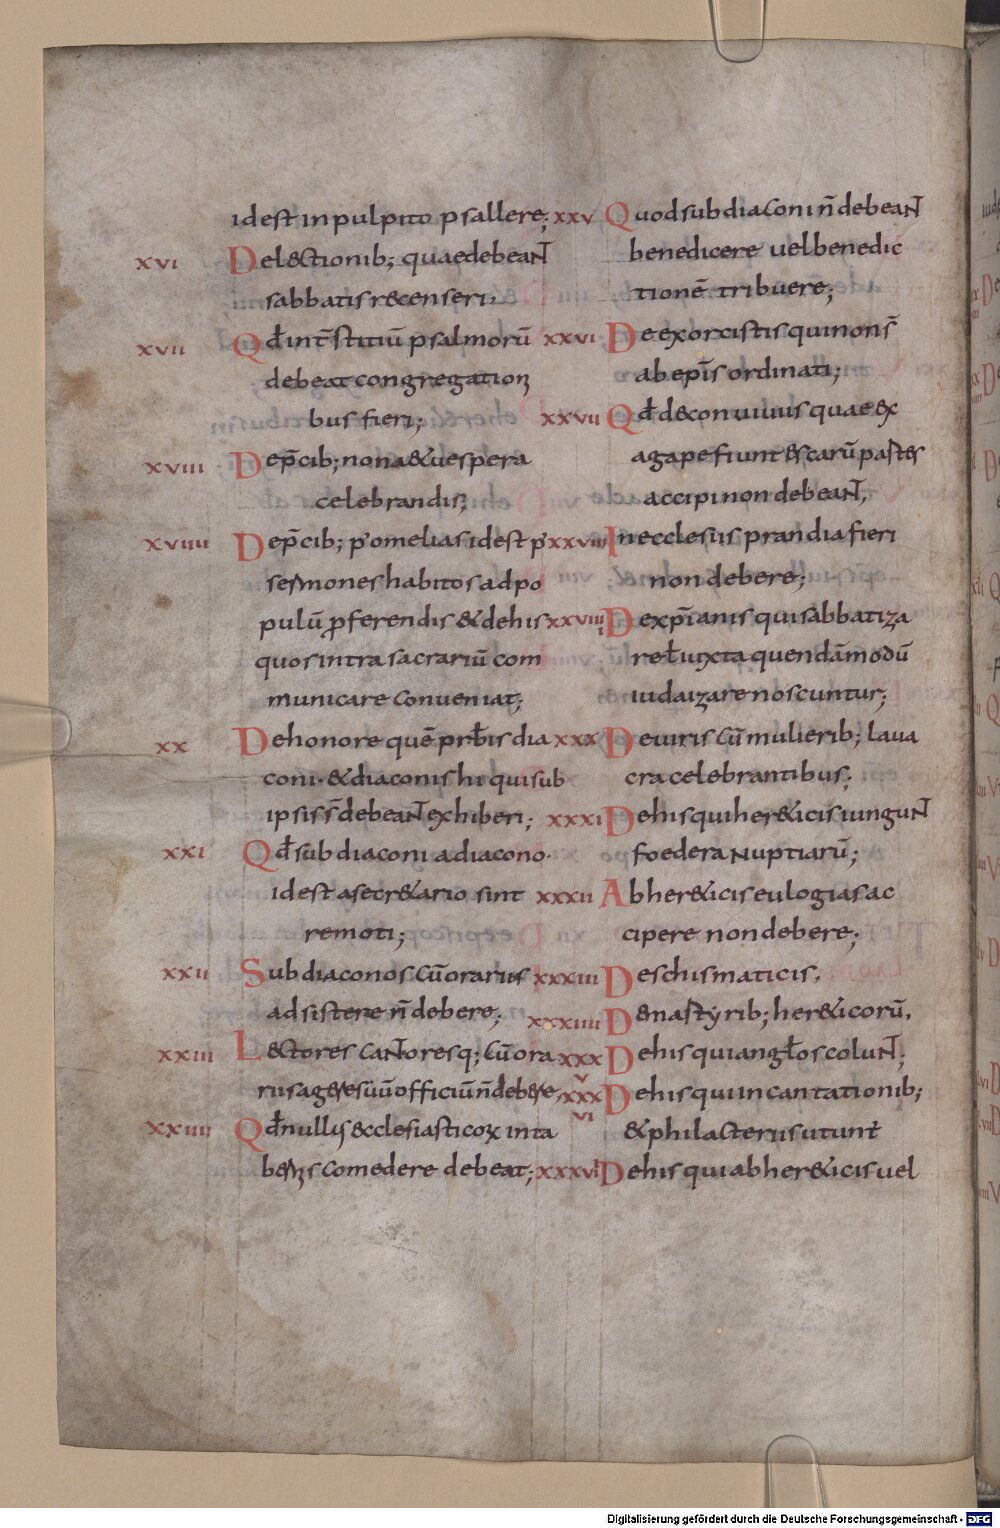 idest in pulpito psallere;
XVI Delectionib; quae debeant
sabbatis recenseri.
XVII Qđ int̄stitiū psalmorū
debeat congregation
bus fieri;
XVIII De p̄cib; nona & uespera
celebrandis;
XVIIII De p̄cib; p' omelias idest p'
sermones habitos ad po
pulū ꝓferendis & de his
quos intra sacrariū com
municare conueniat;
XX De honore quē prƀis dia
coni · & diaconis hi qui sub
ipsis s̄ debeant exhiberi;
XXI Qđ subdiaconi a diacono·
idest a secr&ario sint
remoti;
XXII Subdiaconos cū orariis
adsistere n̄ debere;
XXIII L&ctores cantoresq; cū ora
riis ag&e suū officiū n̄ deb&e,
XXIIII Qđ nullis ecclesiasticoꝝ inta
bernis comedere debeat;
XXV Quod subdiaconi n̄ debeant
benedicere uel benedic
tionē tribuere;
XXVI De exorcistis qui non s̄
ab epīs ordinati;
XXVII Qđ de conuiuiis quae ex
agape fiunt escarū partes
accipi non debeant,
XXVIII In ecclesiis prandia fieri
non debere;
XXVIIII De xp̄ianis qui sabbatiza
re uł iuxta quendā modū
iudaizare noscuntur;
XXX De uiris cū mulierib; laua
cra celebrantibus;
XXXI De his qui her&icis iungunt
foedera nuptiarū;
XXXII Ab her&icis eulogias ac
cipere non debere;
XXXIII De schismaticis.
XXXIIII De martyrib; her&icorū.
XXXV De his qui angłos colunt;
XXXVI De his qui incantationib;
& philacteriis utunt̄
XXXVI De his qui ab her&icis uel
Digitalisierung gefördert durch die Deutsche Forschungsgemeinschaft - DFG